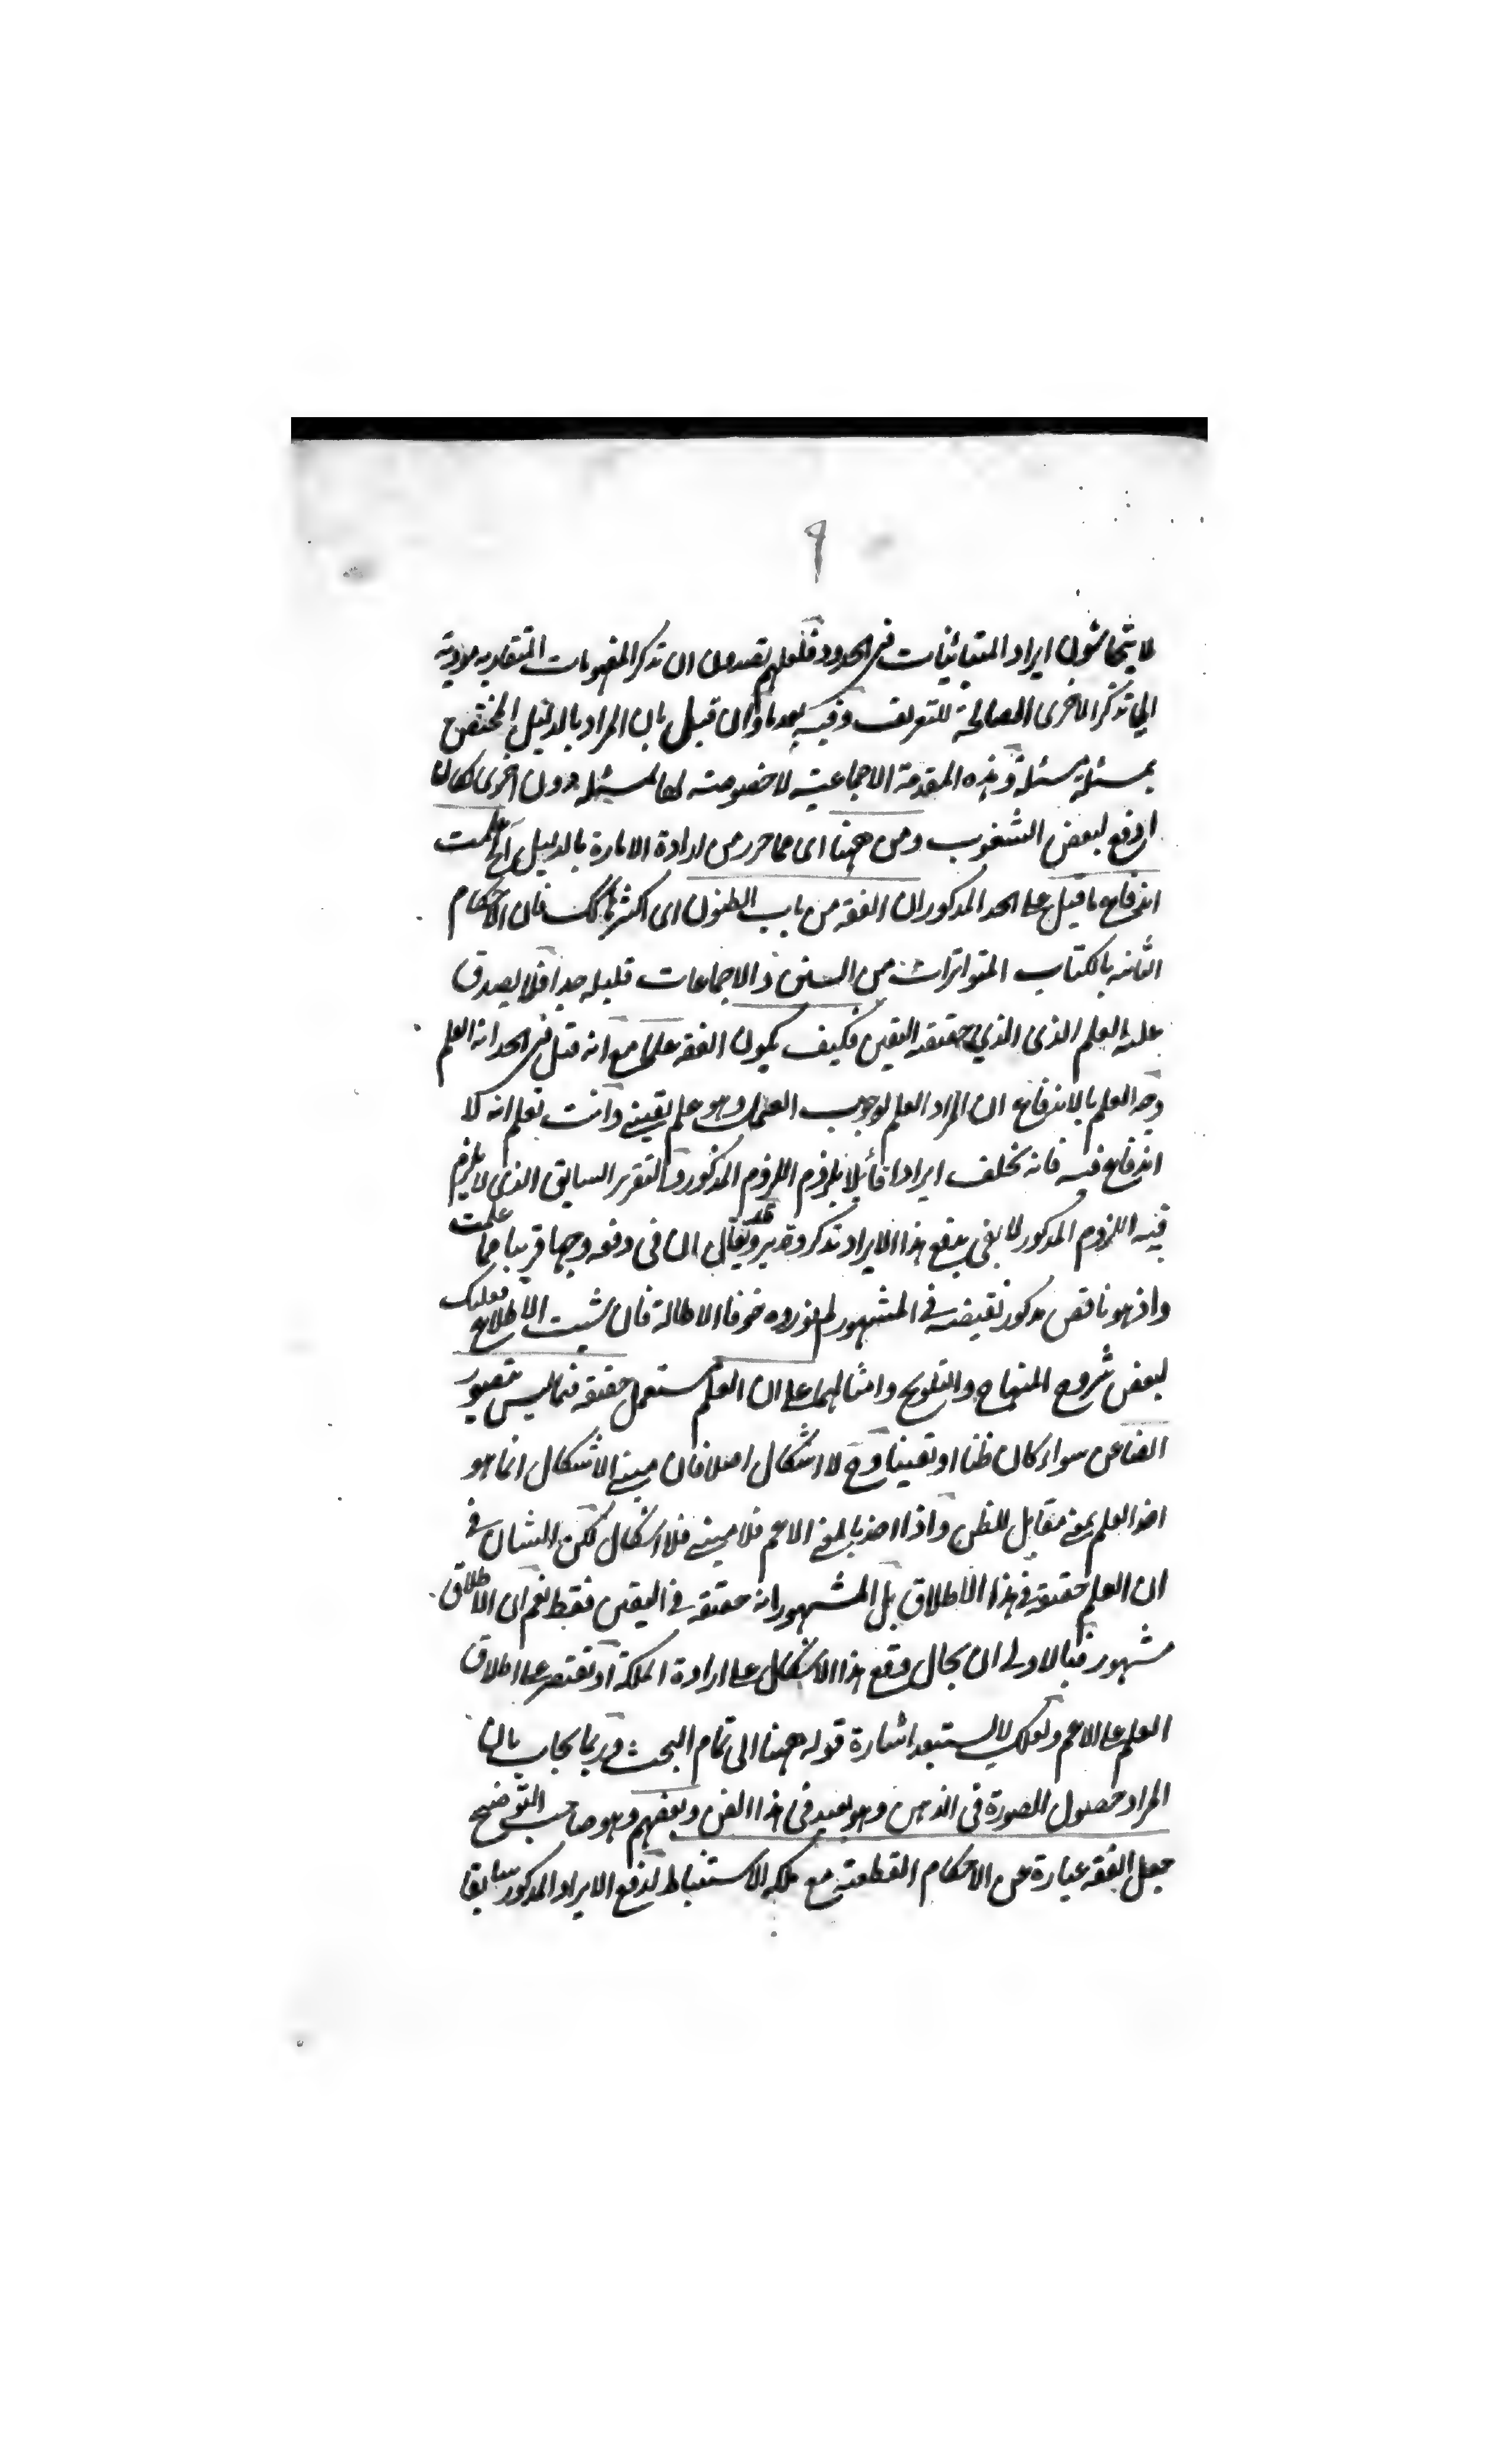 ٩
لا يتحاشون ايراد المتباينات فى الحدود فلعلهم يقصدون ان تذكر المفهومات المتقاربه مودية
الى تذكر الاخرى الصالحة للتعريف وفيه بعد ما وان قيل بان المراد بالدليل المختص
بمسئلة مسئلة وهذه المقدمة الاجماعية لا خصوصة لها لمسئلة دون اخرى لكان
ادفع لبعض الشغوب ومن ههنا اى مما حرر من ارادة الامارة بالدليل علمت
اندفاع ما قيل على الحد المذكور ان الفقه من باب الظنون اى اكثرها كك فان الاحكام
الثابتة بالكتاب المتواترات من السنن و الاجماعات قليلة جدا فلا يصدق
عليه العلم الذى الذي حقيقة اليقين فكيف يكون الفقه علما مع انه قيل فى الحد انه العلم
وجه العلم بالاندفاع ان المراد العلم بوجوب العمل وهو علم يقينى وانت تعلم انه لا
اندفاع فيه فانه تخلف ايرادا قائلا يلزوم اللزوم المذكور والتقرير السابق الذى لا يلزم
فيه اللزوم المذكور لا يفى بدفع هذا الايراد تذكر وتدبر وقد يقال ان فى دفعه وجها قريبا مما علمت
واذ هو ناقص مذكور نقيضه فى المشهور لم نورده خوفا الاطالة فان شيت الاطلاع فعليك
لبعض شروح المنهاج والتلويح وامثالهما على ان العلم مستعمل حقيقة فيما ليس بتصور
ايضا من سواء كان ظنا او يقينا وح لا اشكال اصلا فان مبنى الاشكال انما هو
اخذ العلم بمعنى مقابل للظن واذا اخذ بالمعنى الاعم فلا مبنى فلا اشكال لكن الشان فى
ان العلم حقيقة فى هذا الاطلاق بل المشهور انه حقيقة فى اليقين فقط نعم ان الاطلاق
مشهور فبالاولى ان يحال دفع هذا الاشكال على ارادة الملكة او يقتصر على اطلاق
العلم على الاعم ولعلك لا تستبعد اشارة قوله ههنا الى تمام البحث وربما يجاب بان
المراد حصول الصورة فى الذهن وهو بعيد فى هذا الفن وبعضهم وهو صاحب التوضيح
جعل الفقه عبارة عن الاحكام القطعية مع ملكة الاستنباط لدفع الايراد المذكور سابقا